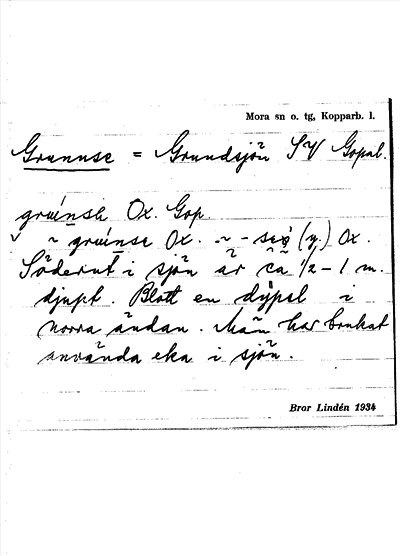 Mora sn o. tg, Kopparb. l.
Grunnse = Grundsjön SV Gopal.
Ox. Gop.
Ox. (y.) Ox.
Söderut i sjön är ca 1/2 – 1 m.
djupt. Blott en dypel i
norra ändan. Man har brukat
använda eka i sjön.
Bror Lindén 1934